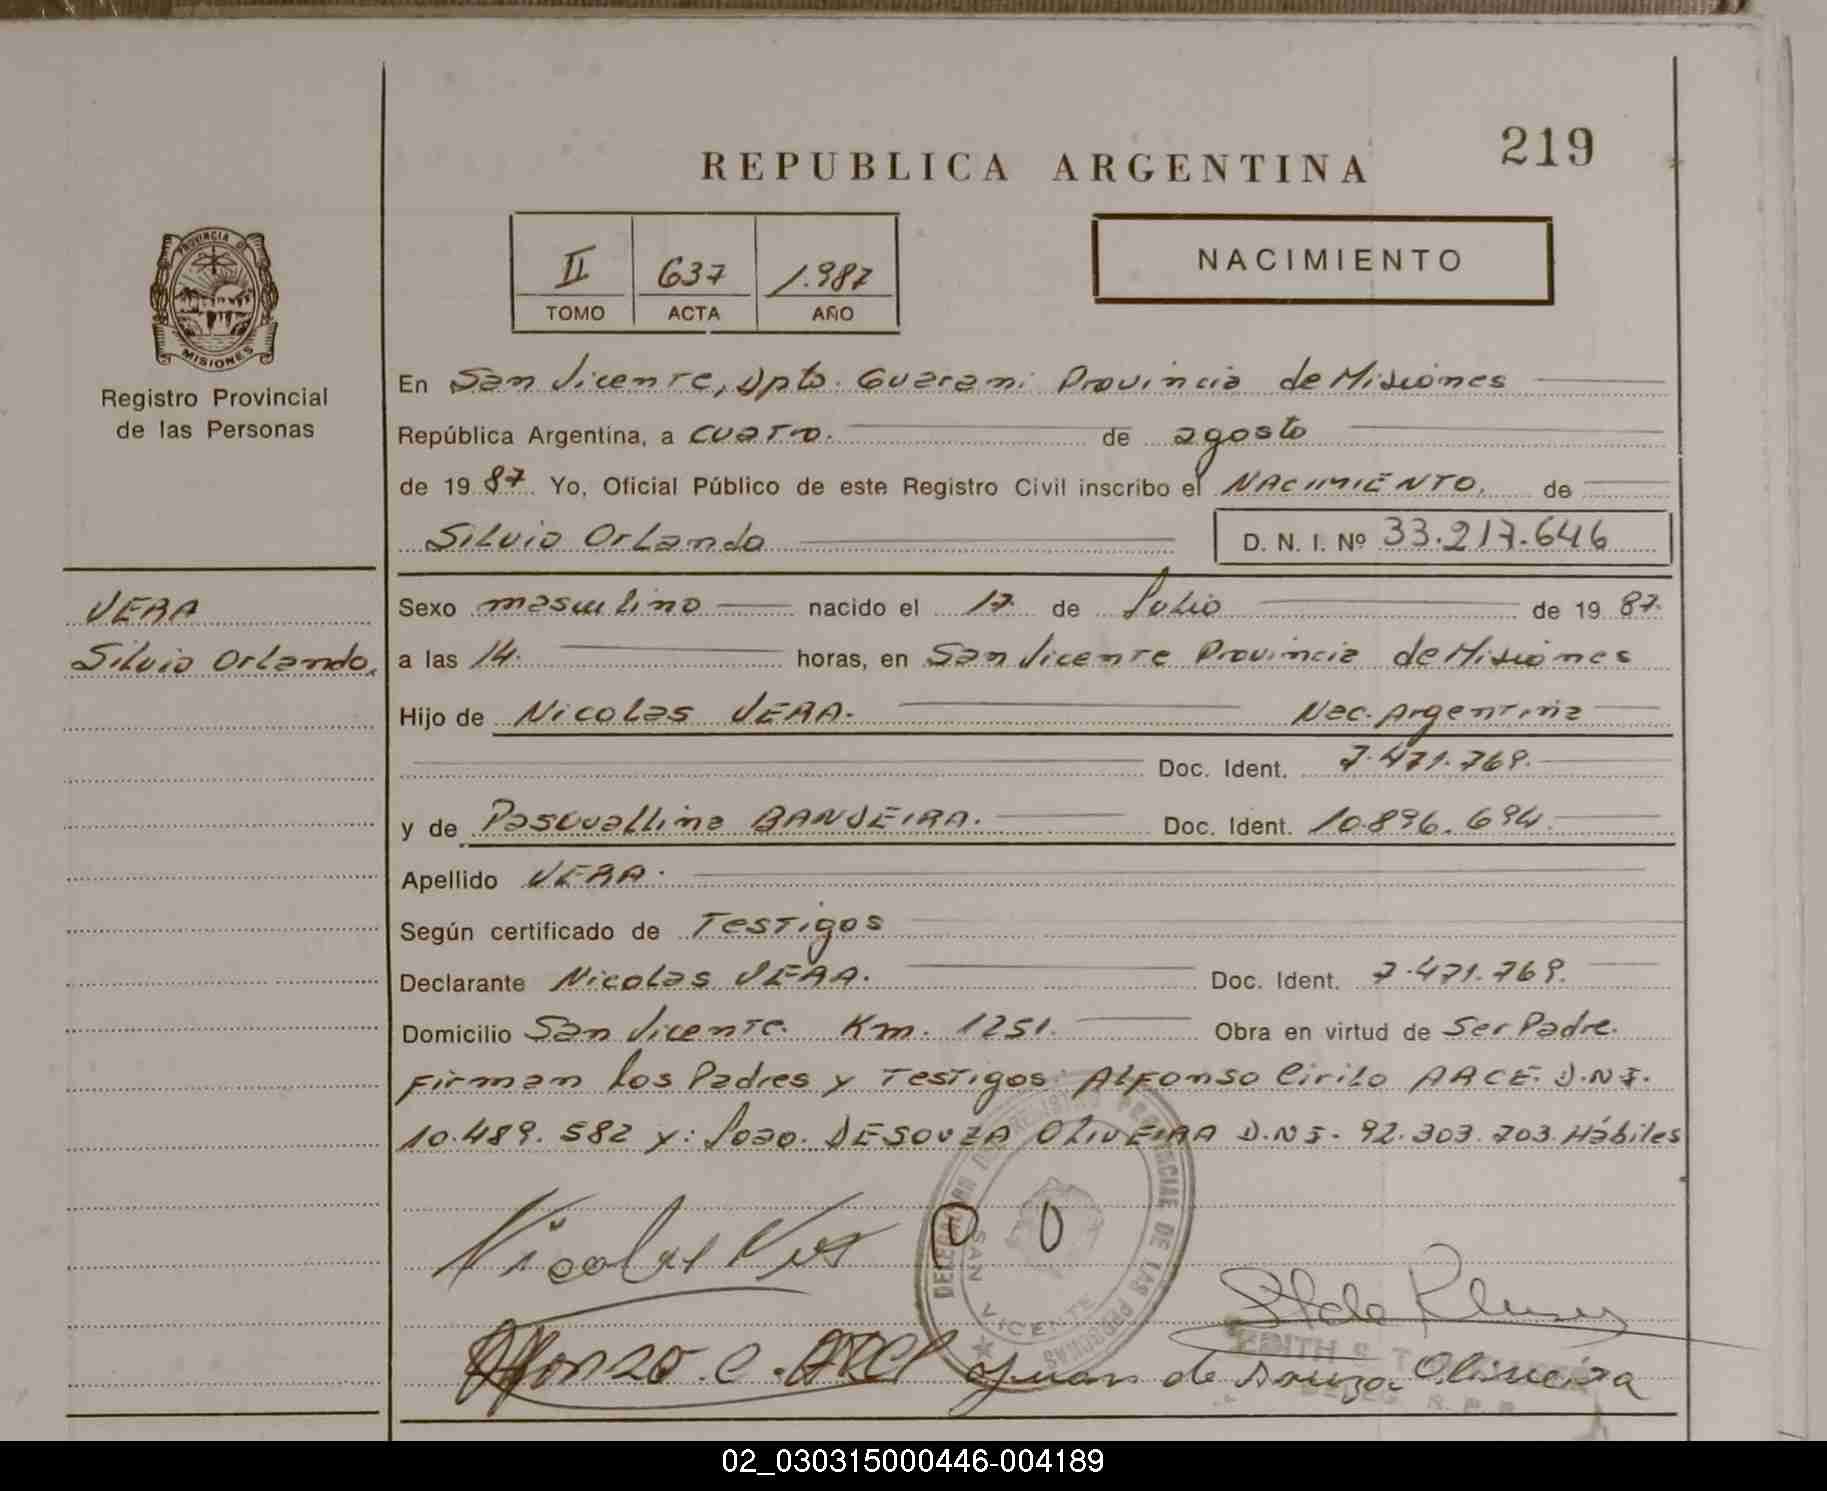 219
REPUBLICA ARGENTINA
PROVINCIA D
MISIONES
Registro Provincial
de las Personas
II 637 1.987
TOMO ACTA AÑO
NACIMIENTO
En San Vicente, Dpto. Guarani Provincia de Misiones
República Argentina, a cuatro. de agosto
de 1987. Yo, Oficial Público de este Registro Civil inscribo el NACIMIENTO. de
Silvio Orlando D. N. I. Nº 33.217.646
VERA
Silvio Orlando.
Sexo masculino nacido el 17 de Julio de 19 87.
a las 14. horas, en San Vicente Provincia de Misiones
Hijo de Nicolas VERA. Nac. Argentina
Doc. Ident. 7.471.769.
y de Pascuallina BANDEIRA. Doc. Ident. 10.896.694.
Apellido VERA.
Según certificado de Testigos
Declarante Nicolas VERA. Doc. Ident. 7.471.769.
Domicilio San Vicente. Km. 1251. Obra en virtud de Ser Padre.
Firman los Padres y Testigos: Alfonso Cirilo ARCE. D.N.I.
10.489.582 y: Joao. DESOUZA OLIVEIRA D.N.I. 92.303.703. Hábiles
Nicolas Vera
DELEGACION DEL REGISTRO PROVINCIAL DE LAS PERSONAS
SAN VICENTE
Alfonzo. C. ARCE Juan de Souza Oliveira
R. P. P.
02_030315000446-004189